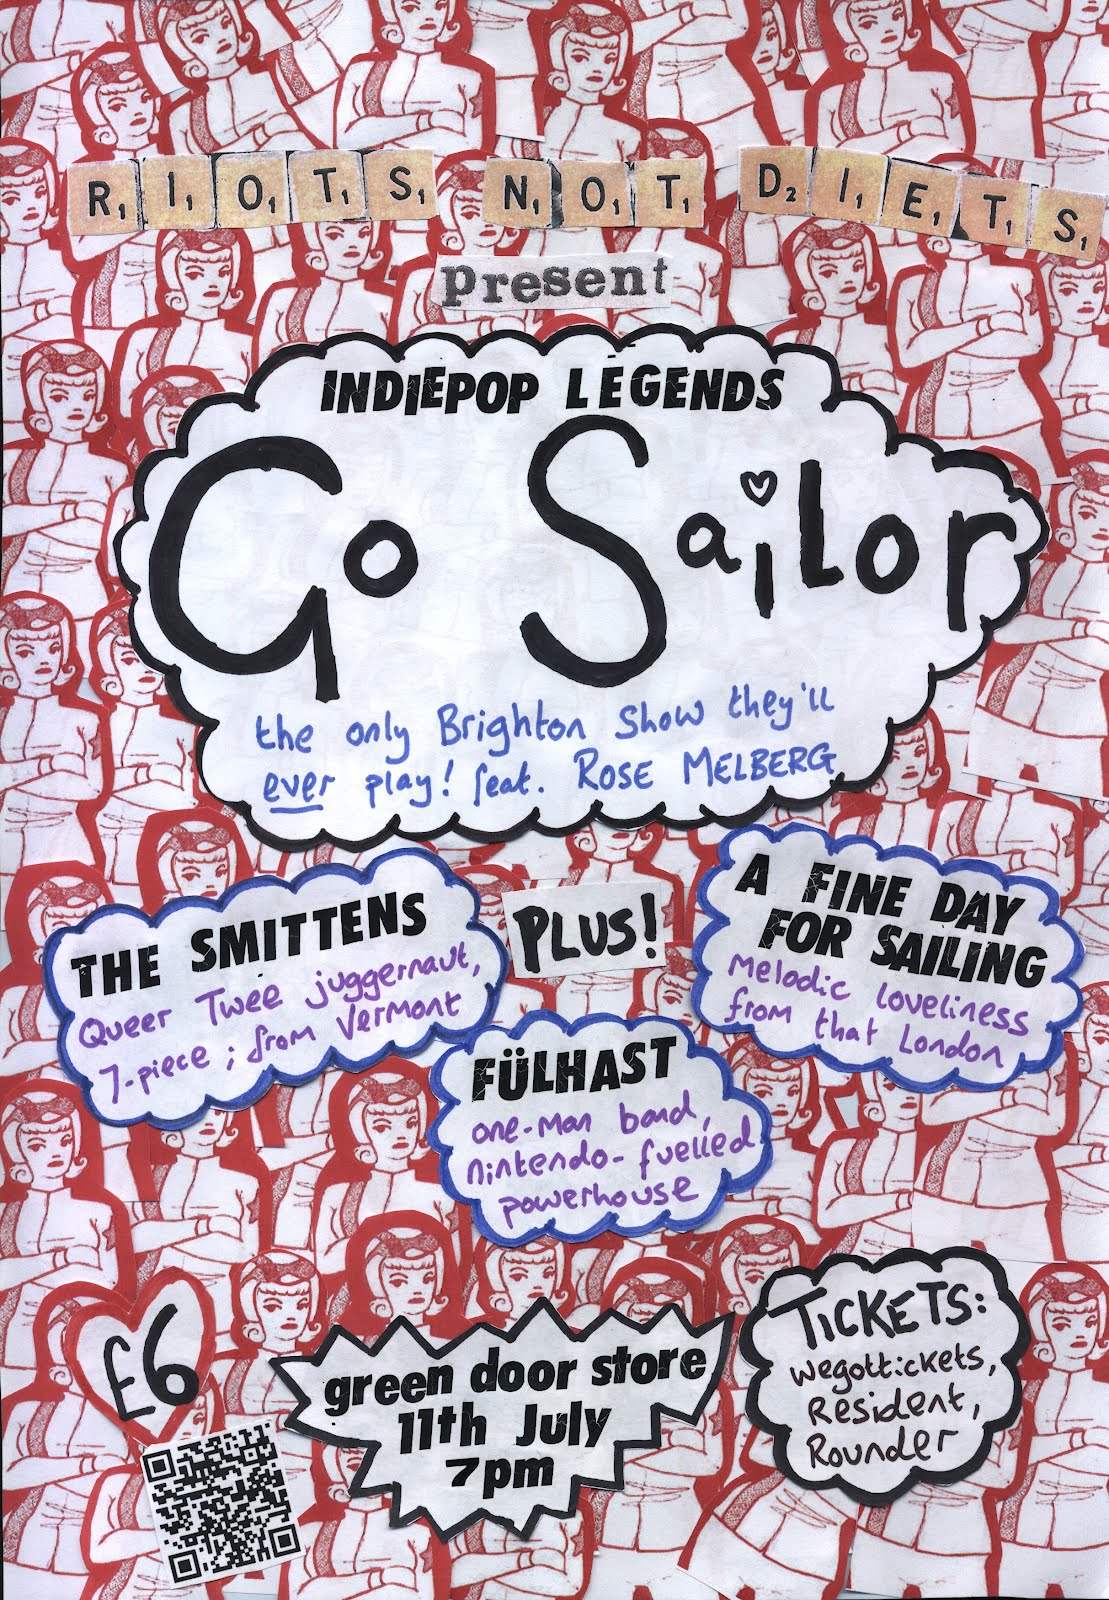 RIOTS NOT DIETS
present
INDIEPOP LEGENDS
Go Sailor
the only Brighton Show they'll
ever play! feat. ROSE MELBERG
THE SMITTENS
Queer Twee juggernaut,
7-piece; from Vermont
PLUS!
A FINE DAY
FOR SAILING
Melodic loveliness
from that London
FÜLHAST
one-man band,
nintendo-fuelled
powerhouse
£6
green door store
11th July
7pm
TICKETS:
wegottickets,
Resident,
Rounder